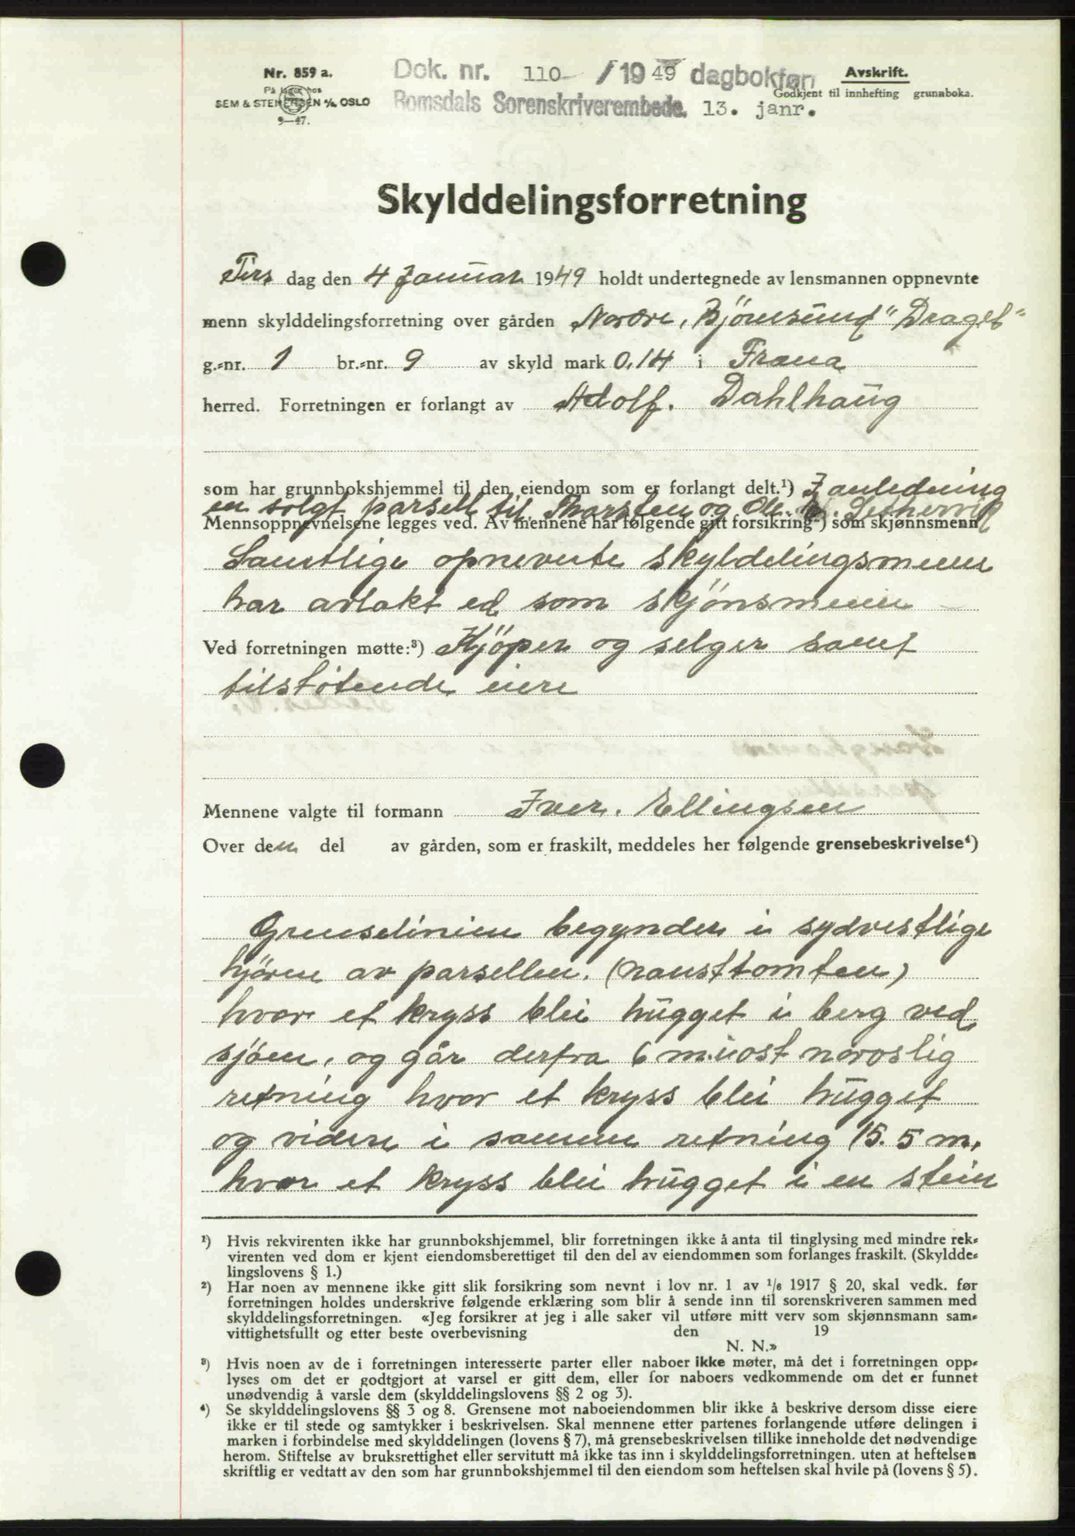 Nr. 859 a.
På lager hos
SEM & STENERSEN A/S, OSLO
9—47.
Dok. nr. 110 / 1949 dagbokført
Romsdals Sorenskriverembede. 13. janr.
Avskrift.
Godkjent til innhefting grunnboka.
Skylddelingsforretning
Tirs dag den 4 Januar 1949 holdt undertegnede av lensmannen oppnevnte
menn skylddelingsforretning over gården Nordre, Bjørnsund "Draget"
g.-nr. 1 br.-nr. 9 av skyld mark 0,14 i Fræna
herred. Forretningen er forlangt av Adolf. Dahlhaug
som har grunnbokshjemmel til den eiendom som er forlangt delt.¹) I anledning
en solgt parsell til Thorsten og Ole
Mennsoppnevnelsene legges ved. Av mennene har følgende gitt forsikring²) som skjønnsmenn
Samtlige opnevnte skylddelingsmenn
har avlakt ed som skjønsmenn
Ved forretningen møtte:³) Kjøper og selger samt
tilstøtende eiere
Mennene valgte til formann Iver. Ellingsen
Over den del av gården, som er fraskilt, meddeles her følgende grensebeskrivelse⁴)
Grenselinien begynder i sydvestlige
hjørne av parsellen. (nausttomten)
hvor et kryss blei hugget i berg ved
sjøen, og går derfra 6 m. i ost nordostlig
retning hvor et kryss blei hugget
og videre i samme retning 15.5 m.
hvor et kryss blei hugget i en stein
¹) Hvis rekvirenten ikke har grunnbokshjemmel, blir forretningen ikke å anta til tinglysing med mindre rek-
virenten ved dom er kjent eiendomsberettiget til den del av eiendommen som forlanges fraskilt. (Skyldde-
lingslovens § 1.)
²) Har noen av mennene ikke gitt slik forsikring som nevnt i lov nr. 1 av ¹/₆ 1917 § 20, skal vedk. før
forretningen holdes underskrive følgende erklæring som blir å sende inn til sorenskriveren sammen med
skylddelingsforretningen. «Jeg forsikrer at jeg i alle saker vil utføre mitt verv som skjønnsmann sam-
vittighetsfullt og etter beste overbevisning den 19
N. N.»
³) Hvis noen av de i forretningen interesserte parter eller naboer ikke møter, må det i forretningen opp-
lyses om det er godtgjort at varsel er gitt dem, eller for naboers vedkommende om det er funnet
unødvendig å varsle dem (skylddelingslovens §§ 2 og 3).
⁴) Se skylddelingslovens §§ 3 og 8. Grensene mot naboeiendommen blir ikke å beskrive dersom disse eiere
ikke er til stede og samtykker i beskrivelsen. Skal mennene etter partenes forlangende utføre delingen i
marken i forbindelse med skylddelingen (lovens § 7), må grensebeskrivelsen tillike inneholde det nødvendige
herom. Stiftelse av bruksrettighet eller servitutt må ikke tas inn i skylddelingsforretningen. uten at heftelsen
skriftlig er vedtatt av den som har grunnbokshjemmel til den eiendom som heftelsen skal hvile på (lovens § 5).